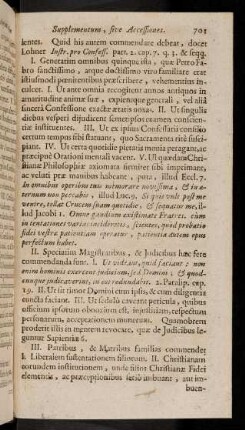 Supplementum, sive Accessiones. 703
lentes. Quid his autem commendare debeat, docet
Lohner Instr. pro Confess. part. 2. cap. 7. q. 3. & seqq.
I. Generatim omnibus quinque illa, quæ Petro Fa-
bro sanctissimo, atque doctissimo viro familiare erat
istiusmodi pœnitentibus præscribere, vehementius in-
I. Ut ante omnia recognitent annos antiquos in
amaritudine animæ suæ, expurgenque generali, vel aliâ
sincerâ Confessione exactæ ætatis noxas. II. Ut singulis
diebus vesperi dijudicent semet ipsos examen conscien-
tiæ instituentes. III. Ut ex ipsius Confessarii consilio
certum tempus sibi statuant, quo Sacramenta ritè susci-
piant. IV. Ut certa quotidie pietatis munia peragant, ac
præcipuè Orationi mentali vacent. V. Ut quædam Chri-
stianæ Philosophiæ axiomata firmiter sibi imprimant,
ac veluti præ manibus habeant, puta, illud Eccl. 7.
In omnibus operibus tuis memorare novissima, & in æ-
ternum non peccabis, illud Luc. 9. Si quis vult post me
venire, tollat Crucem suam quotidie, & sequatur me, il-
lud Jacobi 1. Omne gaudium existimate Fratres, cùm
in tentationes varias incideritis, scientes, quod probatio
fidei vestræ patientiam operatur, patientia autem opus
perfectum habet.
II. Speciatim Magistratibus, & Judicibus hæc ferè
commendanda sunt. I. Ut videant, quid faciant: non
enim hominis exercent judicium, sed Domini; & quod-
cunque judicaverint, in eos redundabit. 2. Paralip. cap.
19. II. Ut sit timor Domini cum ipsis, & cum diligentia
cuncta faciant. III. Ut sedulò caveant pericula, quibus
officium ipsorum obnoxium est, injustitiam, respectum
personarum, acceptationem munerum. Quamobrem
proderit illis in mentem revocare, quæ de Judicibus le-
guntur Sapientiæ 6.
III. Patribus, & Matribus familias commendet
I. Liberalem sustentationem filiorum. II. Christianam
eorundem institutionem, unde fitiot Christianæ Fidei
elementis, ac præceptionibus seriò imbuant, aut im-
buen-